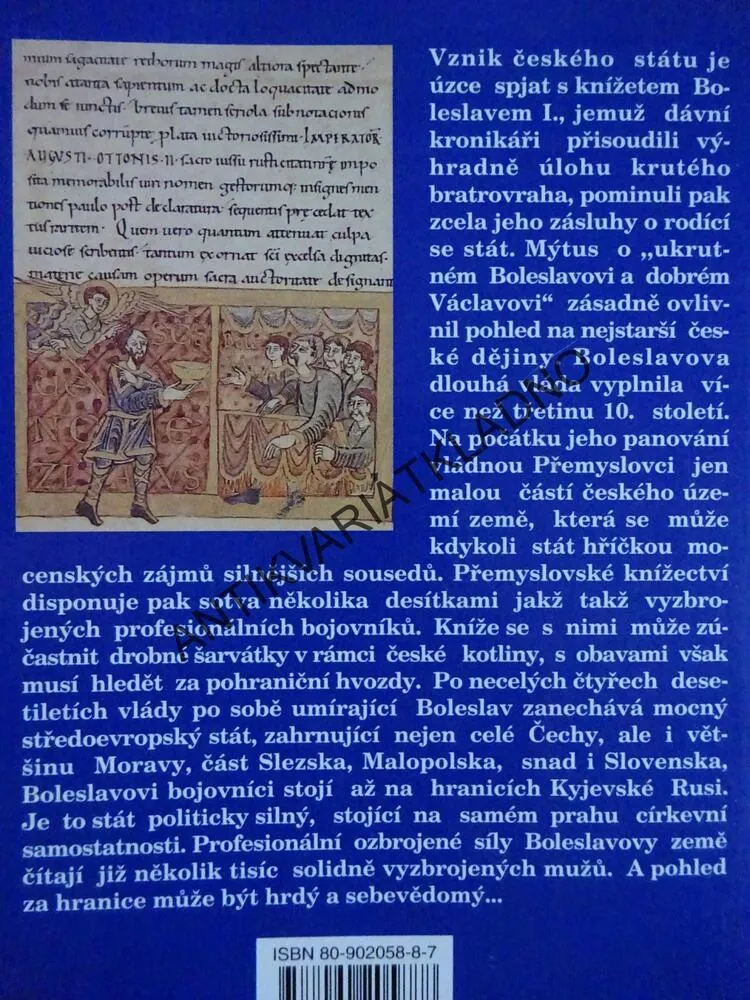 mium sagacitate rethorum magis altiora spectante.
nobis
sapientum ac docta loquacitate admo
dum se iunctis brevis tamen seriola subnotacionis
quamuis corrupte plata uictoriosissimi IMPERATOR
AUGUSTI OTTONIS II sacro iussu rusticitatis impo
sita memorabilis uiri nomen gestorumq insignes men
tiones paulo post declaratura sequentis
tus
Quem vero quantum attenuat culpa
uiciose scribentis tantum exornat sci excelsa dignitas
materie causam operum sacra auctoritate designant
Vznik českého státu je
úzce spjat s knížetem Bo-
leslavem I., jemuž dávní
kronikáři přisoudili vý-
hradně úlohu krutého
bratrovraha, pominuli pak
zcela jeho zásluhy o rodící
se stát. Mýtus o „ukrut-
ném Boleslavovi a dobrém
Václavovi“ zásadně ovliv-
nil pohled na nejstarší čes-
ké dějiny. Boleslavova
dlouhá vláda vyplnila ví-
ce než třetinu 10. století.
Na počátku jeho panování
vládnou Přemyslovci jen
malou částí českého úze-
mí země, která se může
kdykoli stát hříčkou mo-
cenských zájmů silnějších sousedů. Přemyslovské knížectví
disponuje pak sotva několika desítkami jakž takž vyzbro-
jených profesionálních bojovníků. Kníže se s nimi může zú-
častnit drobné šarvátky v rámci české kotliny, s obavami však
musí hledět za pohraniční hvozdy. Po necelých čtyřech dese-
tiletích vlády po sobě umírající Boleslav zanechává mocný
středoevropský stát, zahrnující nejen celé Čechy, ale i vět-
šinu Moravy, část Slezska, Malopolska, snad i Slovenska,
Boleslavovi bojovníci stojí až na hranicích Kyjevské Rusi.
Je to stát politicky silný, stojící na samém prahu církevní
samostatnosti. Profesionální ozbrojené síly Boleslavovy země
čítají již několik tisíc solidně vyzbrojených mužů. A pohled
za hranice může být hrdý a sebevědomý...
ANTIKVARIÁTKLADNO
ISBN 80-902058-8-7